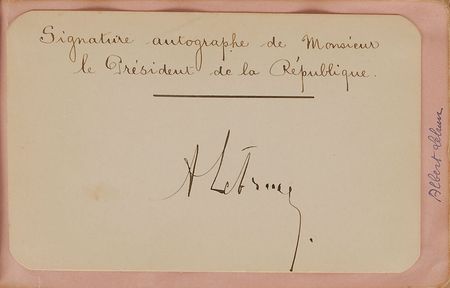 Signature autographe de Monsieur
le Président de la République.
A Lebrun
Albert Lebrun